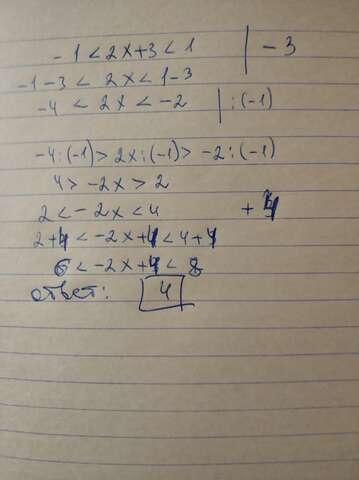 -1 < 2x+3 < 1 | -3
-1-3 < 2x < 1-3
-4 < 2x < -2 | :(-1)
-4:(-1) > 2x:(-1) > -2:(-1)
4 > -2x > 2
2 < -2x < 4 +4
2+4 < -2x+4 < 4+4
6 < -2x+4 < 8
ответ: 4